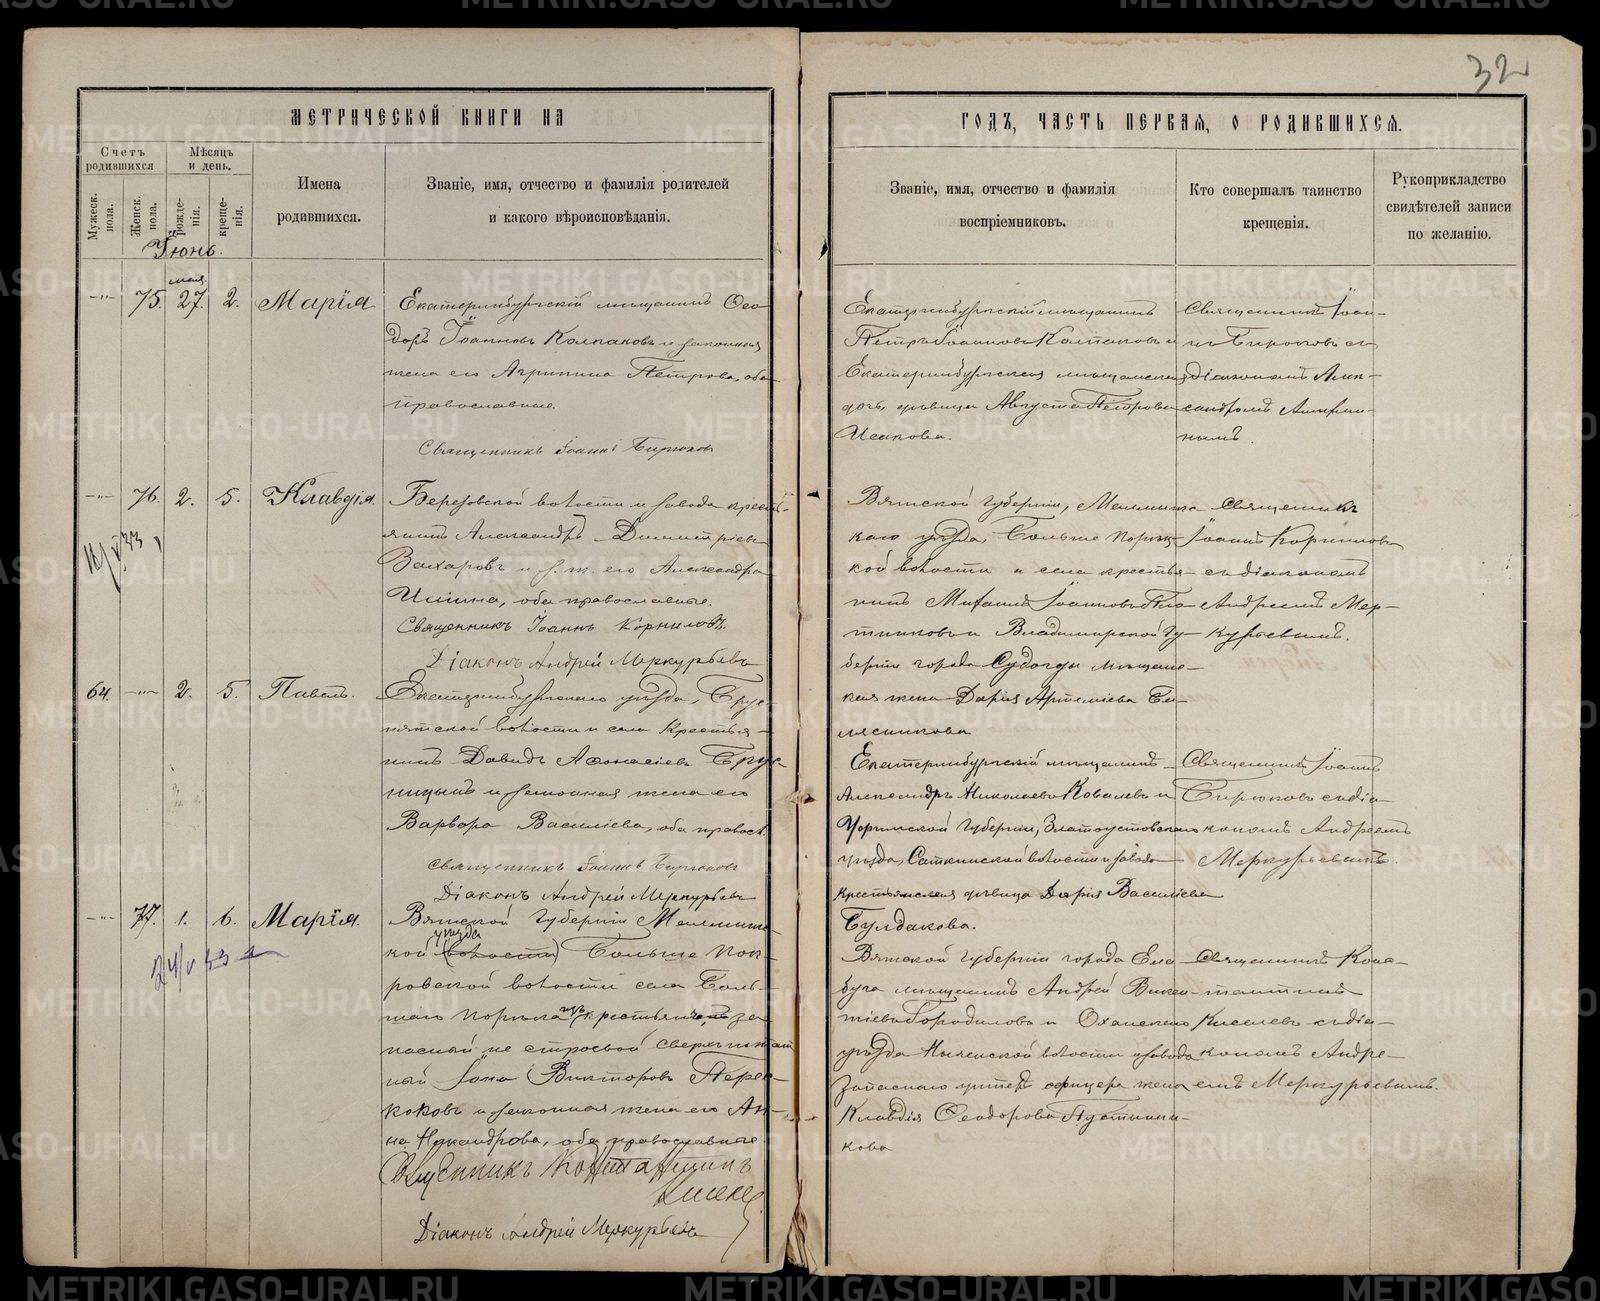 32
МЕТРИЧЕСКОЙ КНИГИ НА
ГОДЪ, ЧАСТЬ ПЕРВАЯ, О РОДИВШИХСЯ.
Счетъ родившихся
Мѣсяцъ и день.
Мужеск. пола.
Женск. пола.
рожде-нія.
креще-нія.
Имена
родившихся.
Званіе, имя, отчество и фамилія родителей
и какого вѣроисповѣданія.
Званіе, имя, отчество и фамилія
воспріемниковъ.
Кто совершалъ таинство
крещенія.
Рукоприкладство
свидѣтелей записи
по желанію.
Іюнь.
мая
75. 27. 2. Марія
Екатеринбургскій мѣщанинъ Ѳео-
доръ Іоанновъ Колпаковъ и законная
жена его Агрипина Петрова, оба
православные.
Священникъ Іоаннъ Бирюковъ
Екатеринбургскій мѣщанинъ
Петръ Іоанновъ Колпаковъ и
Екатеринбургская мѣщанская
дочь, дѣвица Августа Петрова
Исакова.
Священникъ Іоан-
нъ Бирюковъ съ
діакономъ Алек-
сандромъ
нымъ.
76. 2. 5. Клавдія
Березовской волости и завода кресть-
янинъ Александръ Димитріевъ
Захаровъ и з. ж. его Александра
Ильина, оба православные.
Священникъ Іоаннъ Корниловъ.
Діаконъ Андрей Меркурьевъ
Вятской губерніи, Малмыжс-
каго уѣзда, Больше Порек-
кой волости и села крестья-
нинъ Михаилъ Іоанновъ Пло-
тниковъ и Владимирской гу-
берніи города Судогды мѣщанс-
кая жена Дарія Артеміева
Священникъ
Іоаннъ Корниловъ
съ діакономъ
Андреемъ Мер-
курьевымъ.
64. 2. 5. Павелъ.
Екатеринбургскаго уѣзда, Брус-
нятской волости и села крестья-
нинъ Давидъ Аѳонасіевъ Брус-
ницынъ и законная жена его
Варвора Василіева, оба правосл.
Священникъ Іоаннъ Бирюковъ
Діаконъ Андрей Меркурьевъ
Екатеринбургскій мѣщанинъ
Александръ Николаевъ Ковалевъ и
Уфимской губерніи, Златоустовскаго
уѣзда, Саткинской волости и завода
крестьянская дѣвица Дарія Василіева
Булдакова.
Священникъ Іоаннъ
Бирюковъ съ діа-
кономъ Андреемъ
Меркурьевымъ.
77. 1. 6. Марія.
Вятской губерніи Малмыжс-
кой (волости) уѣзда Больше Пор-
ровской волости села Боль-
шаго Порека изъ крестьянъ за-
пасный не строевой сверхштат-
ный Викторовъ Перев-
коковъ и законная жена его Ан-
на Никандрова, оба православные.
Священникъ Константинъ
Киселевъ
Діаконъ Андрей Меркурьевъ
Вятской губерніи города Ела-
буга мѣщанинъ Андрей Викен-
тіевъ Городиловъ и Оханскаго
уѣзда Нытвенской волости и завода
запаснаго унтеръ офицера жена
Клавдія Ѳеодорова Пустынни-
кова
Священникъ Конс-
тантинъ
Киселевъ съ діа-
кономъ Андре-
емъ Меркурьевымъ.
METRIKI.GASO-URAL.RU